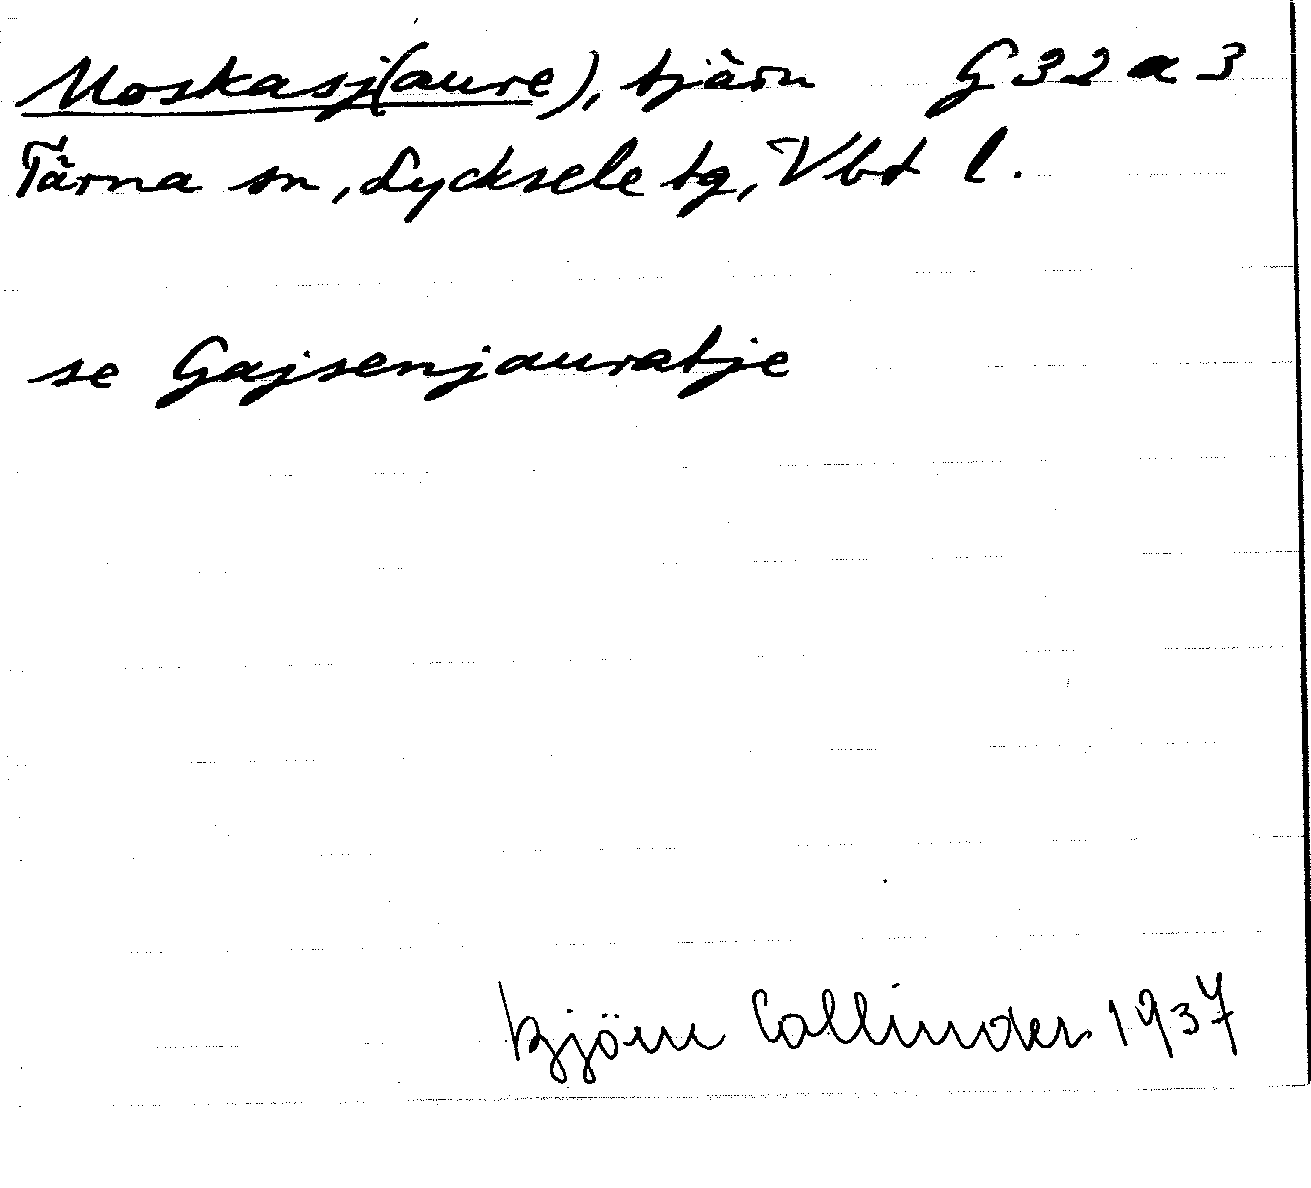 Moskasj(aure), tjärn G 32 a 3
Tärna sn, Lycksele tg, Vbt l.
se Gajsenjauratje
Björn Collinder 1937